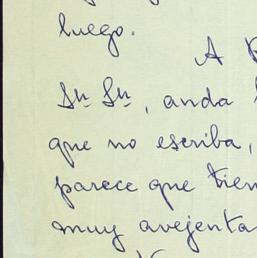 luego.
A
Sn Sn, anda
que no escriba,
parece que tien
muy avejenta